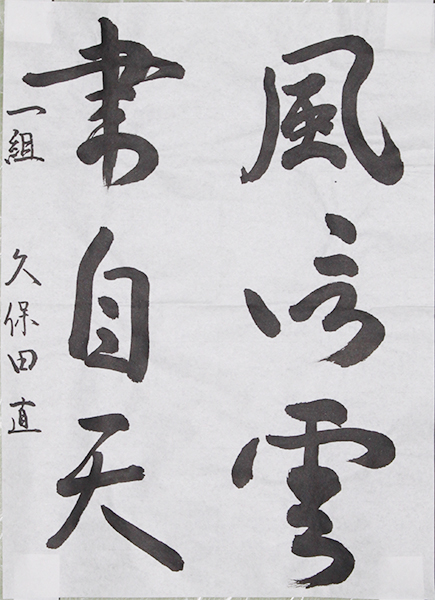 風信雲
書自天
一組 久保田直